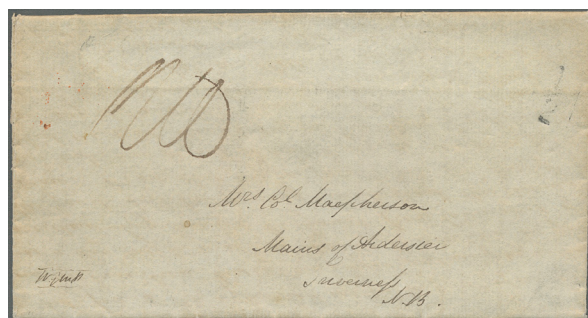 Mrs Col Macpherson
Mains of Ardersier
Inverness
N.B.